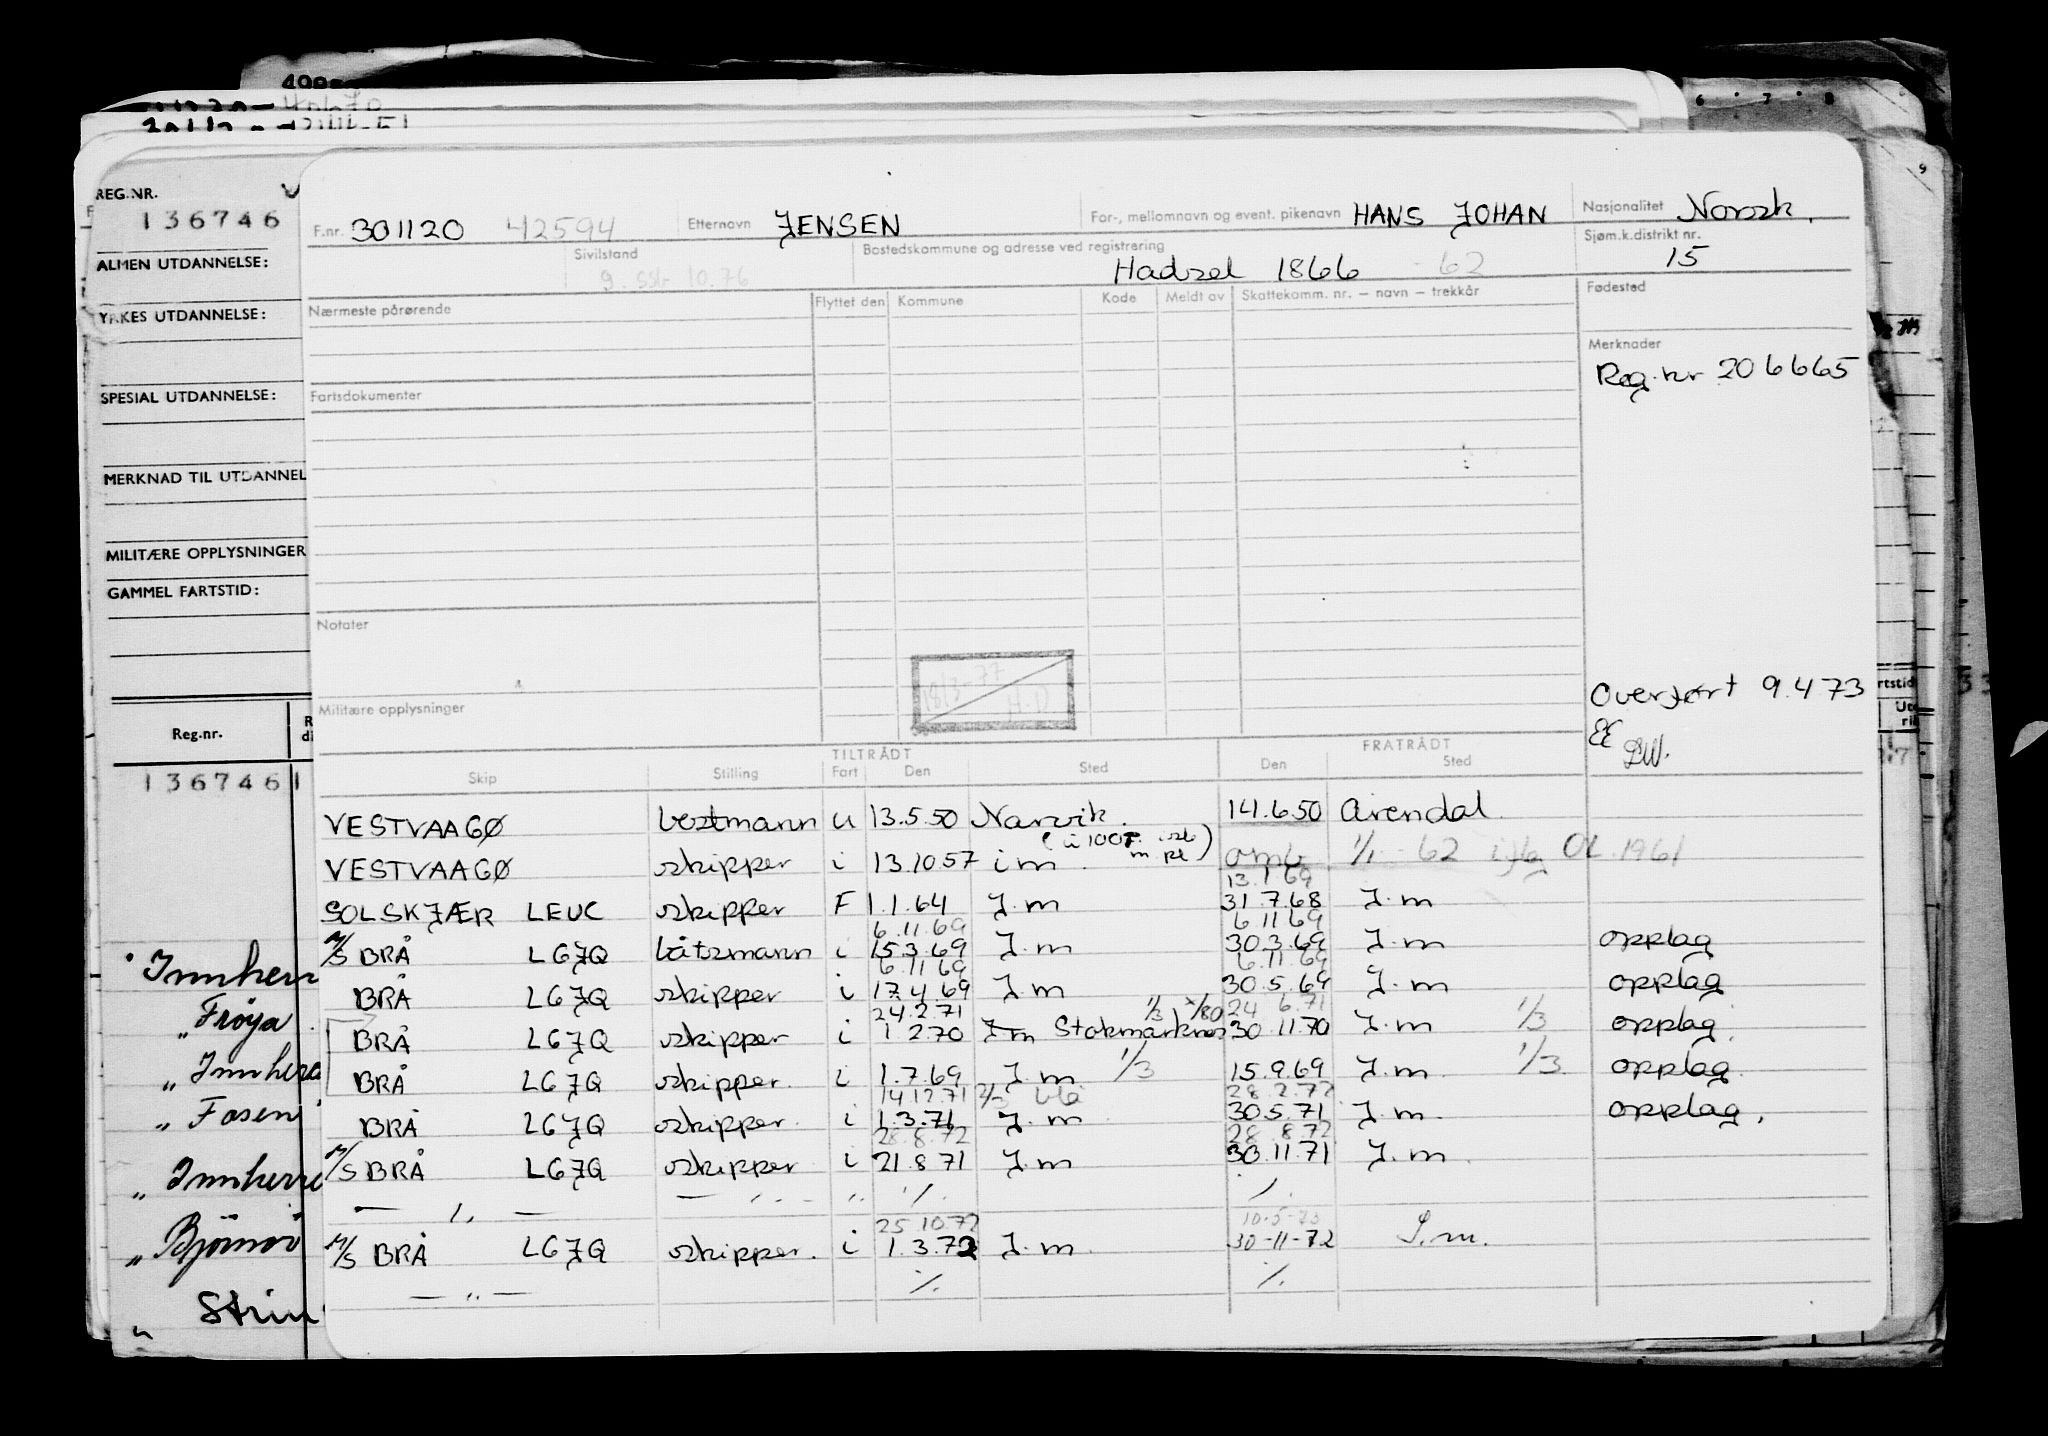 REG.NR.
136746
ALMEN UTDANNELSE:
YRKES UTDANNELSE:
SPESIAL UTDANNELSE:
MERKNAD TIL UTDANNEL
MILITÆRE OPPLYSNINGER
GAMMEL FARTSTID:
Reg.nr.
136746
Innherr
" Frøya
" Innherr
" Fosen
" Innherre
" Bjørnör
F.nr. 301120 42594 Etternavn JENSEN For-, mellomnavn og event. pikenavn HANS JOHAN Nasjonalitet Norsk.
Sivilstand g. 10.76 Bostedskommune og adresse ved registrering Hadsel 1866 - 62 Sjøm.k.distrikt nr. 15
Nærmeste pårørende Flyttet den Kommune Kode Meldt av Skattekomm. nr. – navn – trekkår Fødested
Merknader
Reg.nr 206665
Fartsdokumenter
Notater
18/3-77 H.D
Overført 9.4 73
Militære opplysninger
TILTRÅDT FRATRÅDT
Skip Stilling Fart Den Sted Den Sted
VESTVAAGØ bestmann u 13.5.50 Narvik. 14.6.50 Arendal
VESTVAAGØ skipper i 13.10 57 i m omb 1/1 - 62 OL 1961
13.1.69
SOLSKJÆR LEUC skipper F 1.1.64 J.m 31.7.68 J.m
6.11.69 6.11 69
M/S BRÅ LGJQ båtsmann i 15.3.69 J.m 30.3.69 J.m opplag
6.11.69 6.11.69
BRÅ LGJQ skipper i 17.4.69 J.m 30.5.69 J.m opplag
24.2.71 1/3 24 6.71
BRÅ LGJQ skipper i 1.2.70 J.m Stokmarknes 30.11.70 J.m 1/3 opplag.
BRÅ LGJQ skipper. i 1.7.69 J.m 1/3 15.9.69 J.m 1/3 opplag.
14.12.71 28.2.72
BRÅ LGJQ skipper. i 1.3.71 J.m 30.5.71 J.m. opplag.
28.8.72 28.8.72
M/S BRÅ LGJQ skipper i 21.8 71 J.m 30.11.71 J.m.
— " — — " — " ./. ./.
25.10.72 10-5-73
M/S BRÅ LGJQ skipper. i 1.3.72 J.m. 30-11-72 J.m.
— " — ./. ./.